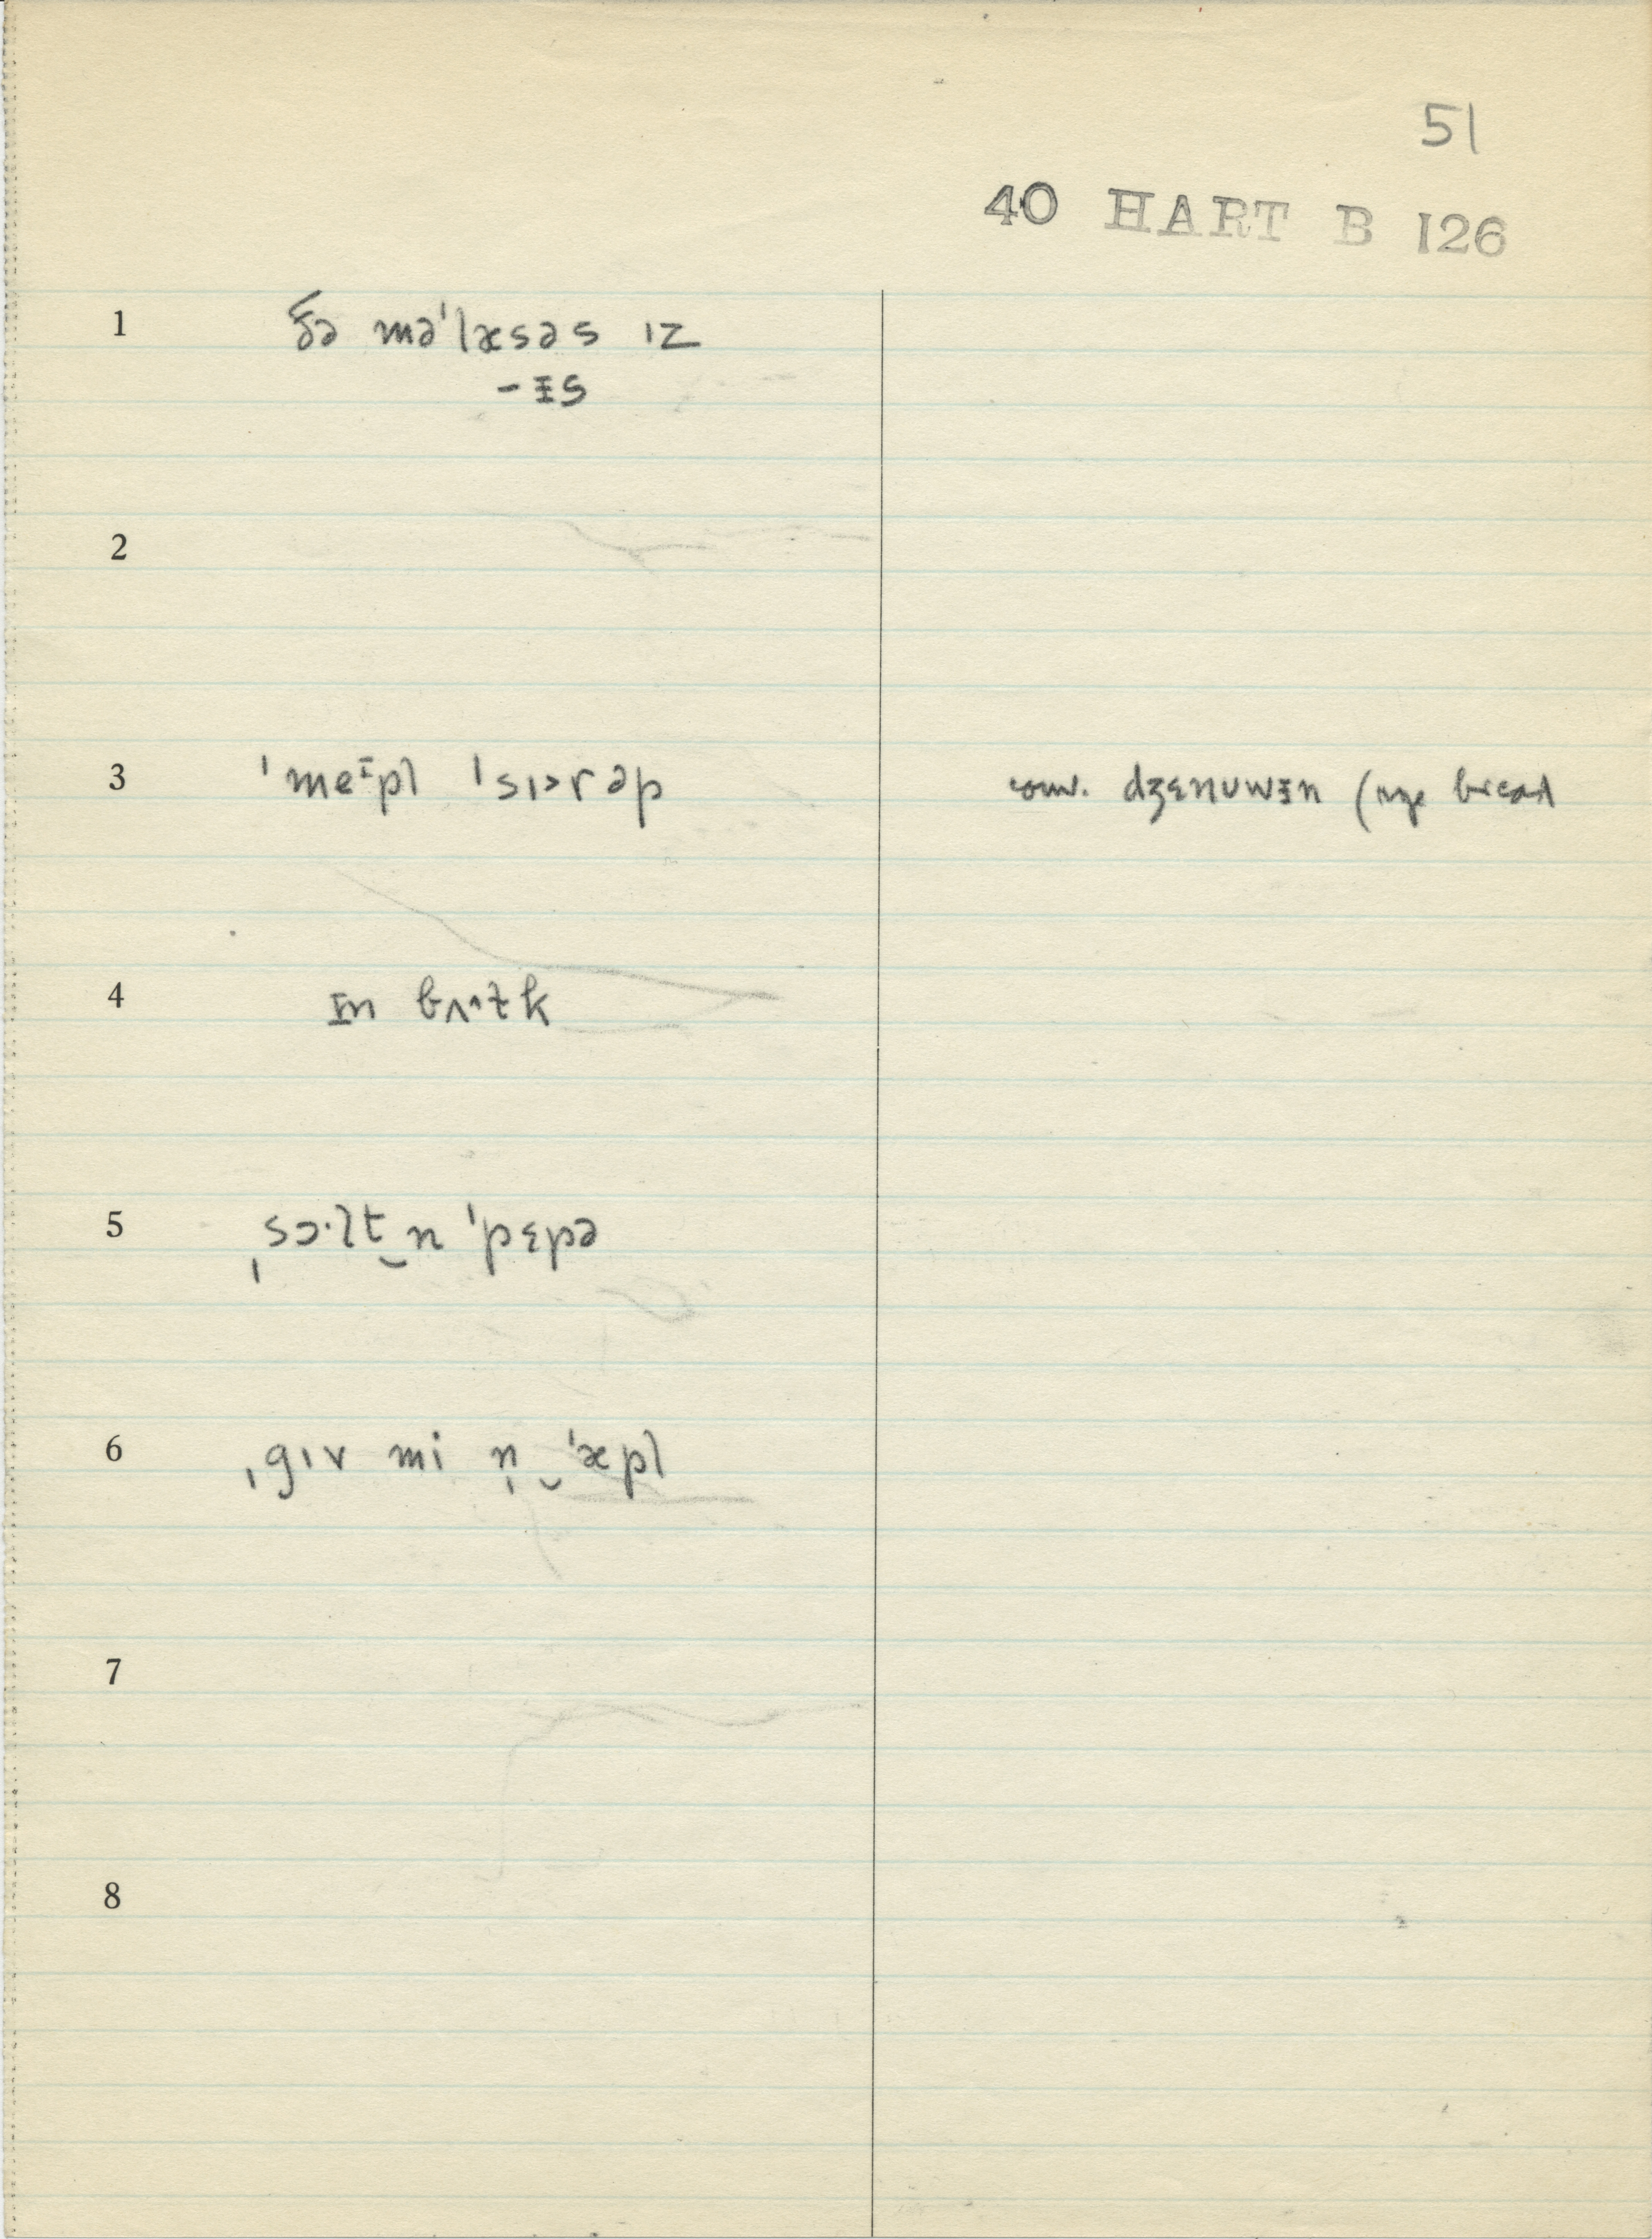 51
40 HART B 126
1 ðə məˈlæsəs ɪz
-ᵻs
2
3 ˈmeɪpl ˈsɪ>rəp conv. dʒɛnʊwᵻn (rye bread
4 ᵻn bʌ^ɫk
5 ˌsɔ·lt‿n ˈpɛpə
6 ˌgɪv mi n̩‿ˈæpl
7
8